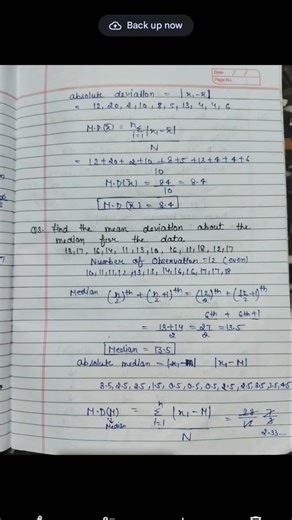 Back up now
Date
Page No.
absolute deviation = |x₁-x̄|
= 12, 20, 2, 10, 8, 5, 13, 4, 4, 6
M.D(x̄) = n Σ i=1 |x₁-x̄| / N
= 12+20+2+10+8+5+13+4+4+6 / 10
M.D(x̄) = 84/10 = 8.4
[M.D(x̄) = 8.4]
Q3. Find the mean deviation about the
median for the data
13, 17, 16, 14, 11, 13, 10, 16, 11, 18, 12, 17
Number of Observation = 12 (even)
10, 11, 11, 12, 13, 13, 14, 16, 16, 17, 17, 18
Median (n/2)th + (n/2+1)th = (12/2)th + (12/2+1)th
6th + 6th+1
= 13+14/2 = 27/2 = 13.5
[Median = 13.5]
absolute median = |x₁-M|
3.5, 2.5, 2.5, 1.5, 0.5, 0.5, 0.5, 2.5, 2.5, 3.5, 3.5, 4.5
M.D(M) = n Σ i=1 |x₁-M| / N = 28/12 7/3
Median
2.33...